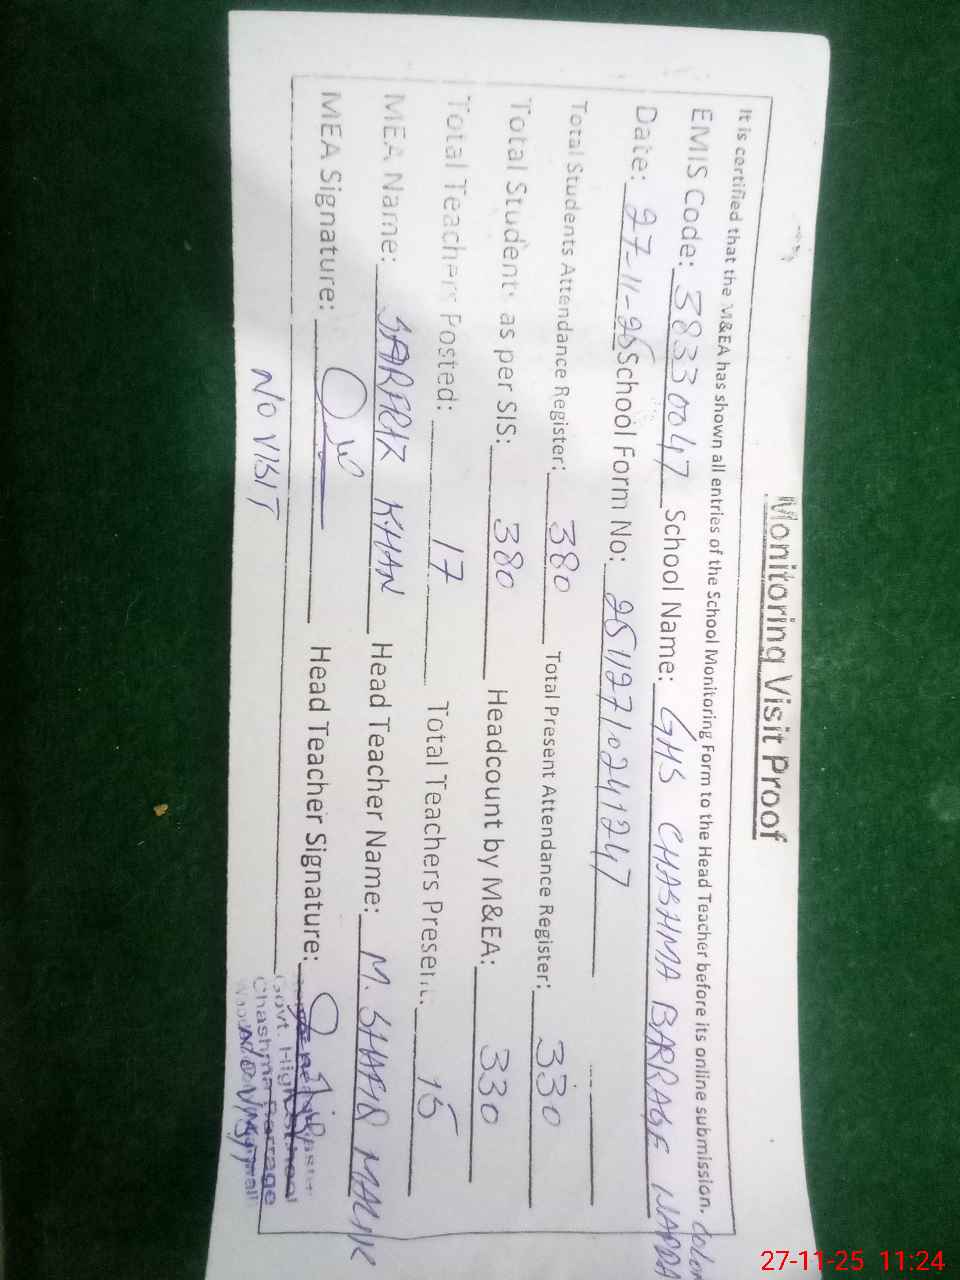 Monitoring Visit Proof
It is certified that the M&EA has shown all entries of the School Monitoring Form to the Head Teacher before its online submission.
EMIS Code: 38330047 School Name: GHS CHASHMA BARRAGE WAPDA
Date: 27-11-25 School Form No: 25112710241247
Total Students Attendance Register: 380 Total Present Attendance Register: 330
Total Students as per SIS: 380 Headcount by M&EA: 330
Total Teachers Posted: 17 Total Teachers Present: 15
MEA Name: SARFRAZ KHAN Head Teacher Name: M. SHAFIQ MALIK
MEA Signature: Head Teacher Signature:
Govt. High School
Chashma Barrage
NO VISIT
27-11-25 11:24